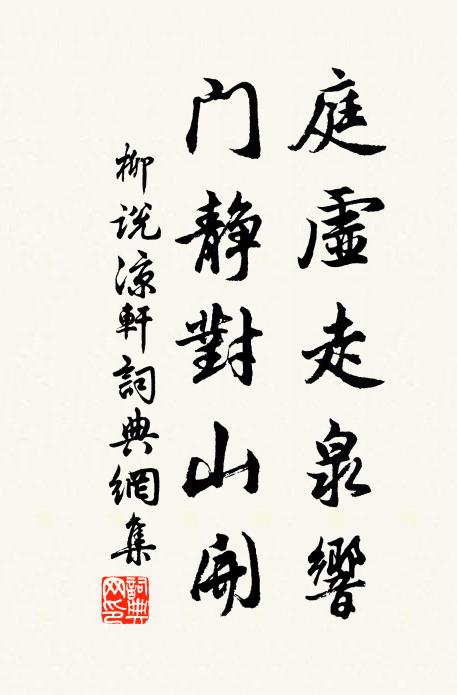 庭虛走泉響
门静對山開
柳说凉軒詞典網集
詞典
网印